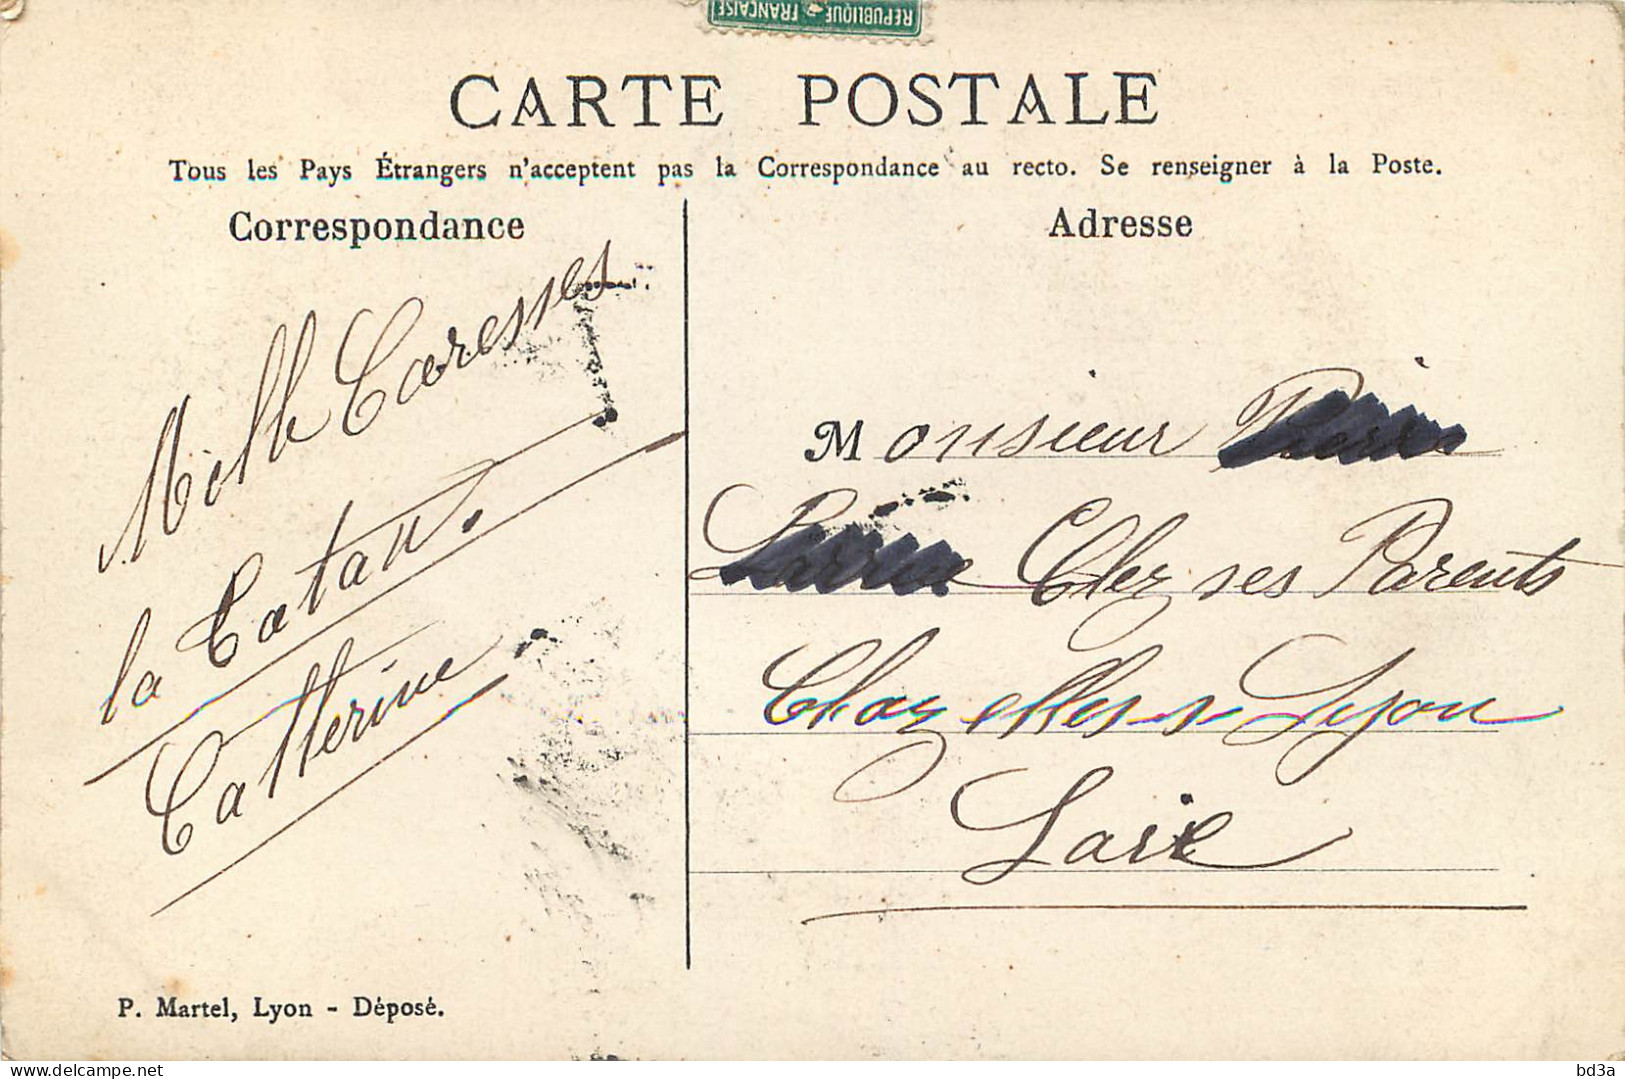 RÉPUBLIQUE FRANÇAISE
CARTE POSTALE
Tous les Pays Étrangers n'acceptent pas la Correspondance au recto. Se renseigner à la Poste.
Correspondance
Mille Caresses
la Catau.
Catterine
P. Martel, Lyon - Déposé.
Adresse
Monsieur
Chez ses Parents
Chazelles s Lyon
Loire
www.delcampe.net
bd3a